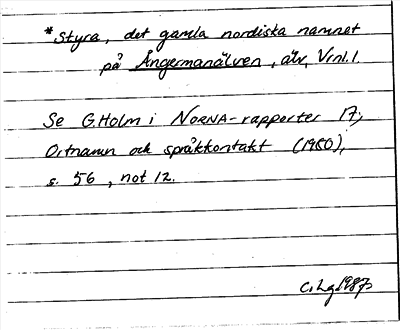 *Styra, det gamla nordiska namnet
på Ångermanälven, älv, Vrnl.l.
Se G.Holm i NORNA-rapporter 17,
Ortnamn och språkkontakt (1980),
s. 56, not 12.
C.Lg 1987